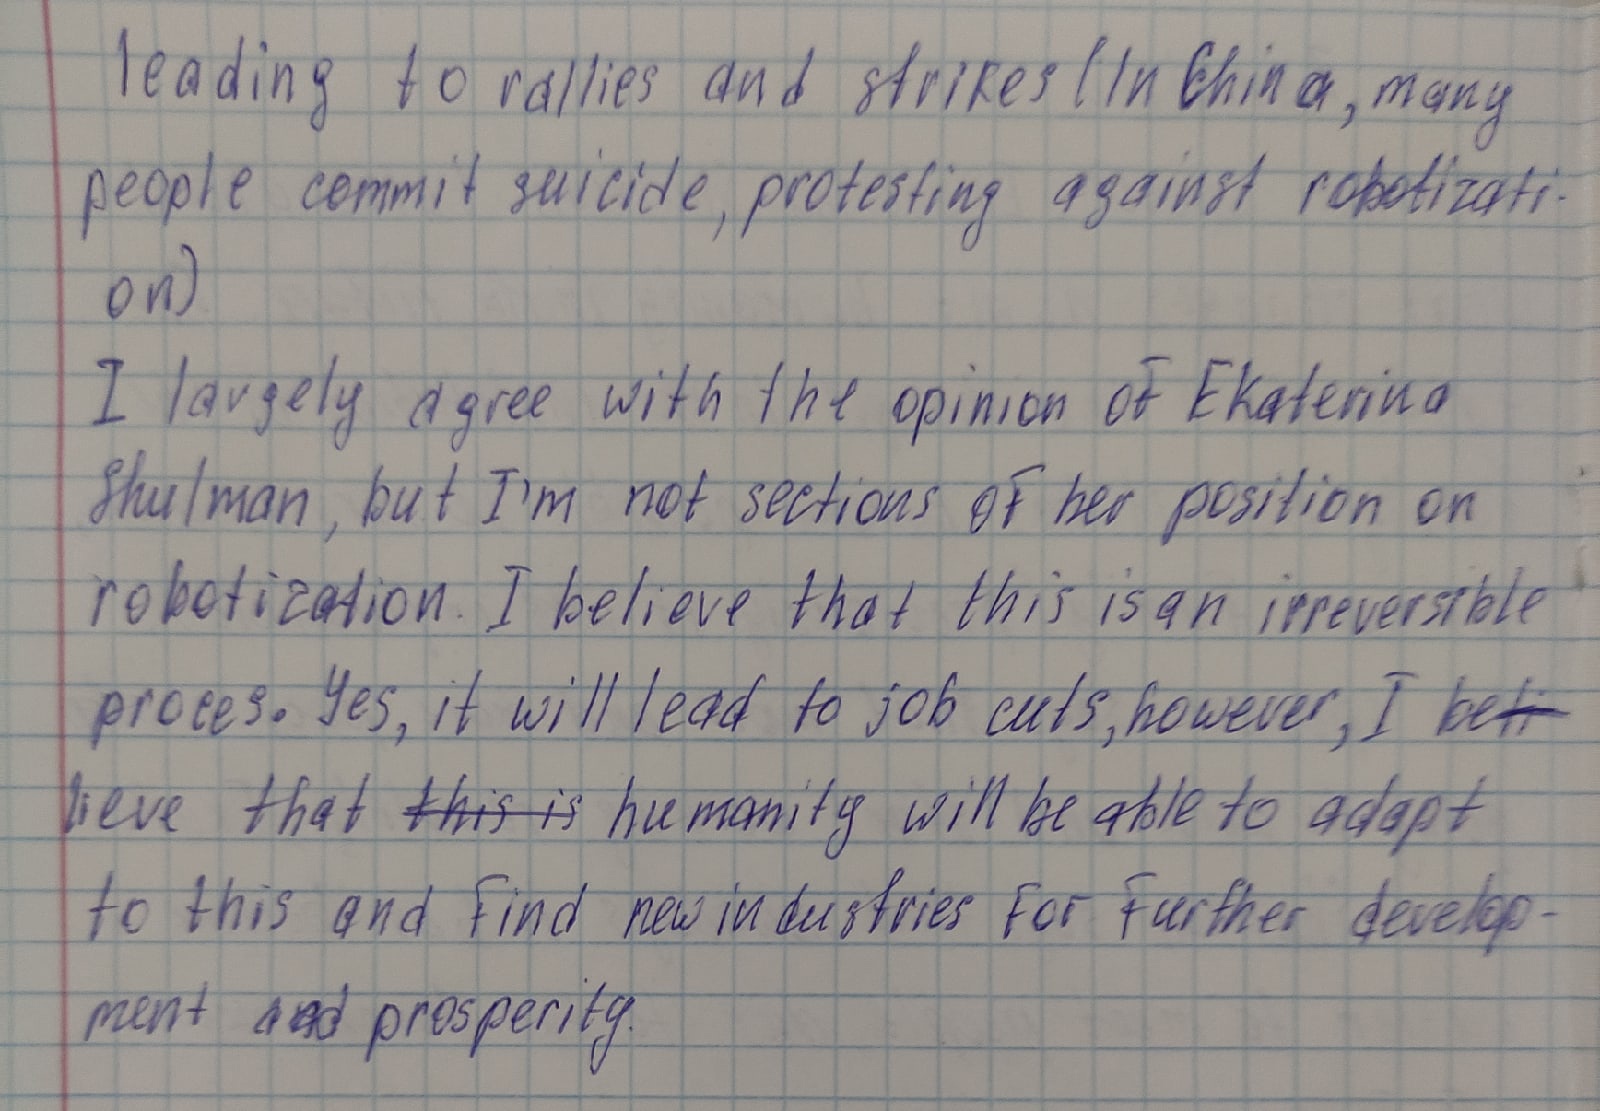 leading to rallies and strikes (In China, many
people commit suicide, protesting against robotizati-
on)
I largely agree with the opinion of Ekaterina
Shulman, but I'm not sections of her position on
robotization. I believe that this is an irreversible
proces. Yes, it will lead to job cuts, however, I beli
lieve that this is humanity will be able to adapt
to this and find new industries for further develop-
ment and prosperity.